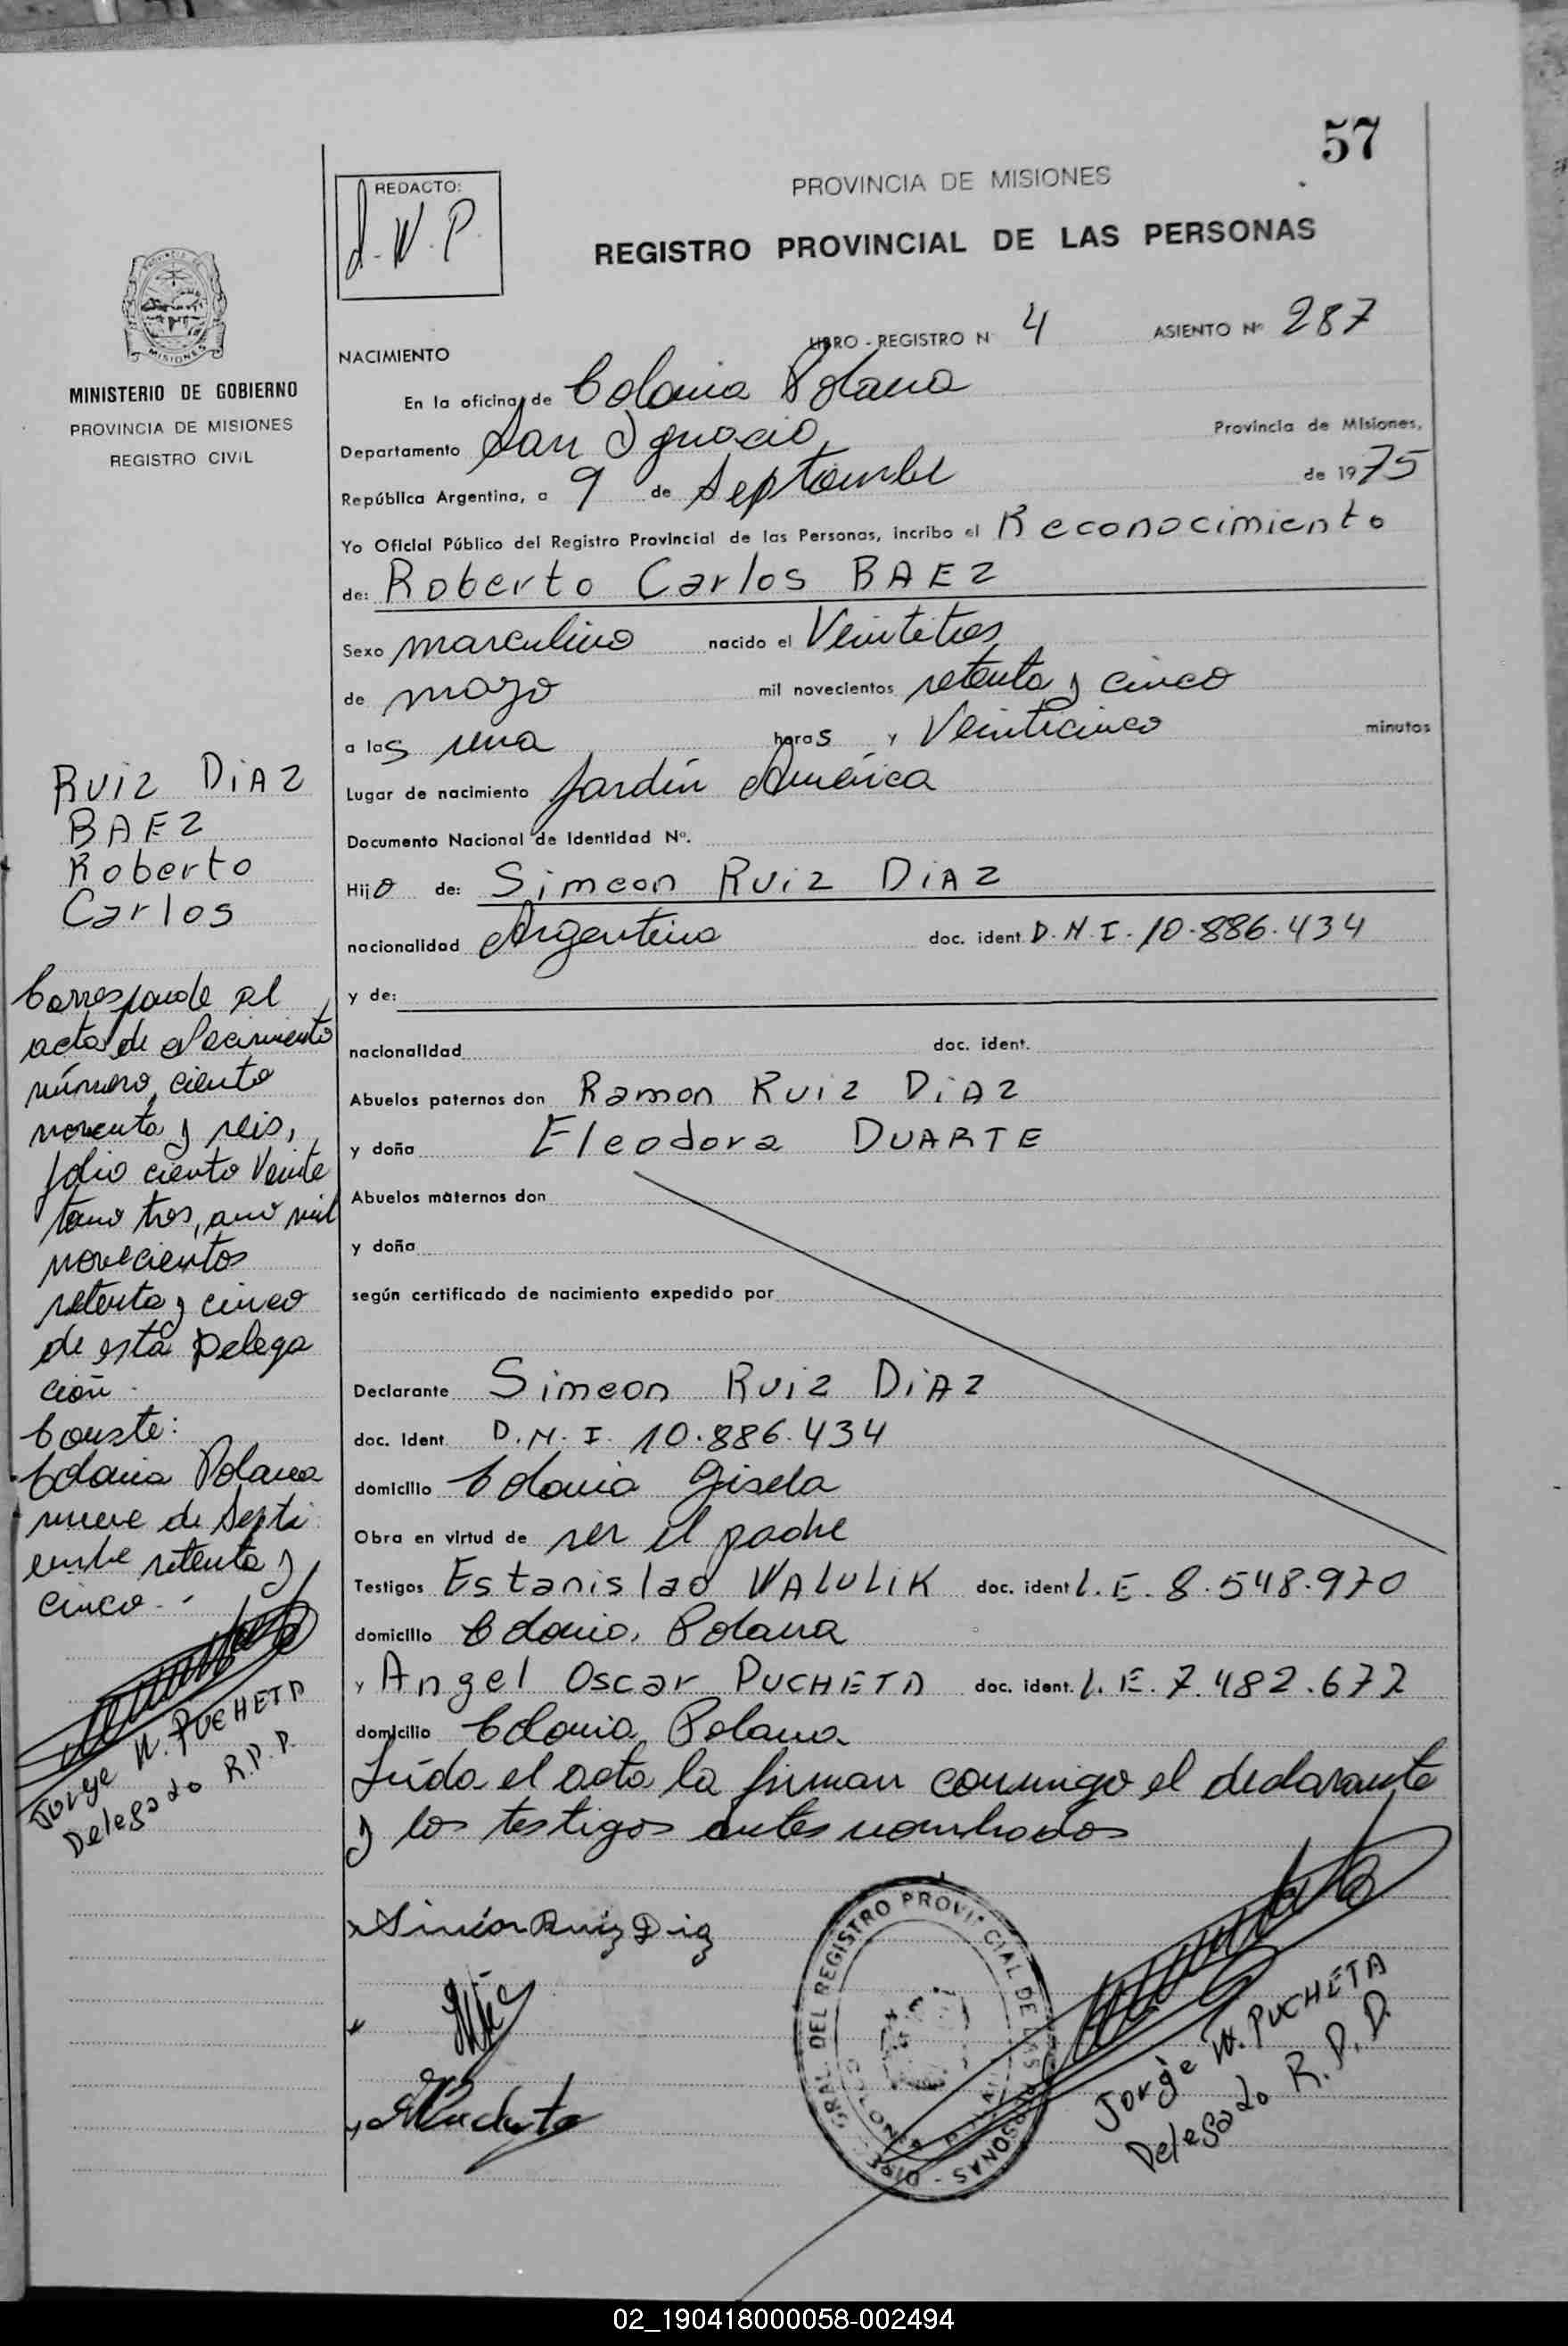 57
REDACTO:
J. W. P.
PROVINCIA DE MISIONES
REGISTRO PROVINCIAL DE LAS PERSONAS
MISIONES
MINISTERIO DE GOBIERNO
PROVINCIA DE MISIONES
REGISTRO CIVIL
NACIMIENTO
LIBRO - REGISTRO N 4 ASIENTO Nº 287
En la oficina de Colonia Polana
Departamento San Ignacio, Provincia de Misiones,
República Argentina, a 9 de Septiembre de 1975
Yo Oficial Público del Registro Provincial de las Personas, incribo el Reconocimiento
de: Roberto Carlos BAEZ
Sexo masculino nacido el Veintitres
de mayo mil novecientos setenta y cinco
a las una horas y Veinticinco minutos
Lugar de nacimiento Jardín América
Documento Nacional de Identidad Nº.
Hijo de: Simeon Ruiz DiAZ
nacionalidad Argentino doc. ident. D.N.I. 10.886.434
y de:
nacionalidad doc. ident.
Abuelos paternos don Ramon Ruiz DiAZ
y doña Eleodora DUARTE
Abuelos maternos don
y doña
según certificado de nacimiento expedido por
Declarante Simeon Ruiz DiAZ
doc. Ident. D.N.I. 10.886.434
domicilio Colonia Gisela
Obra en virtud de ser el padre
Testigos Estanislao WALULiK doc. ident L.E. 8.548.970
domicilio Colonia Polana
y Angel Oscar PUCHETA doc. ident. L.E. 7.482.672
domicilio Colonia Polana
Leída el acta la firman conmigo el declarante
y los testigos antes nombrados
Ruiz DiAZ
BAEZ
Roberto
Carlos
Corresponde al
acta de Nacimiento
número ciento
noventa y seis,
folio ciento Veinte
tomo tres, año mil
novecientos
setenta y cinco
de esta Delega
ción.
Conste:
Colonia Polana
nueve de Septi
embre setenta y
cinco.-
Jorge W. PUCHETA
Delegado R.P.P.
Simeon Ruiz Diaz
APucheta
GRAL DEL REGISTRO PROVINCIAL DE LAS PERSONAS - DIREC
Jorge W. PUCHETA
Delegado R.P.P.
02_190418000058-002494